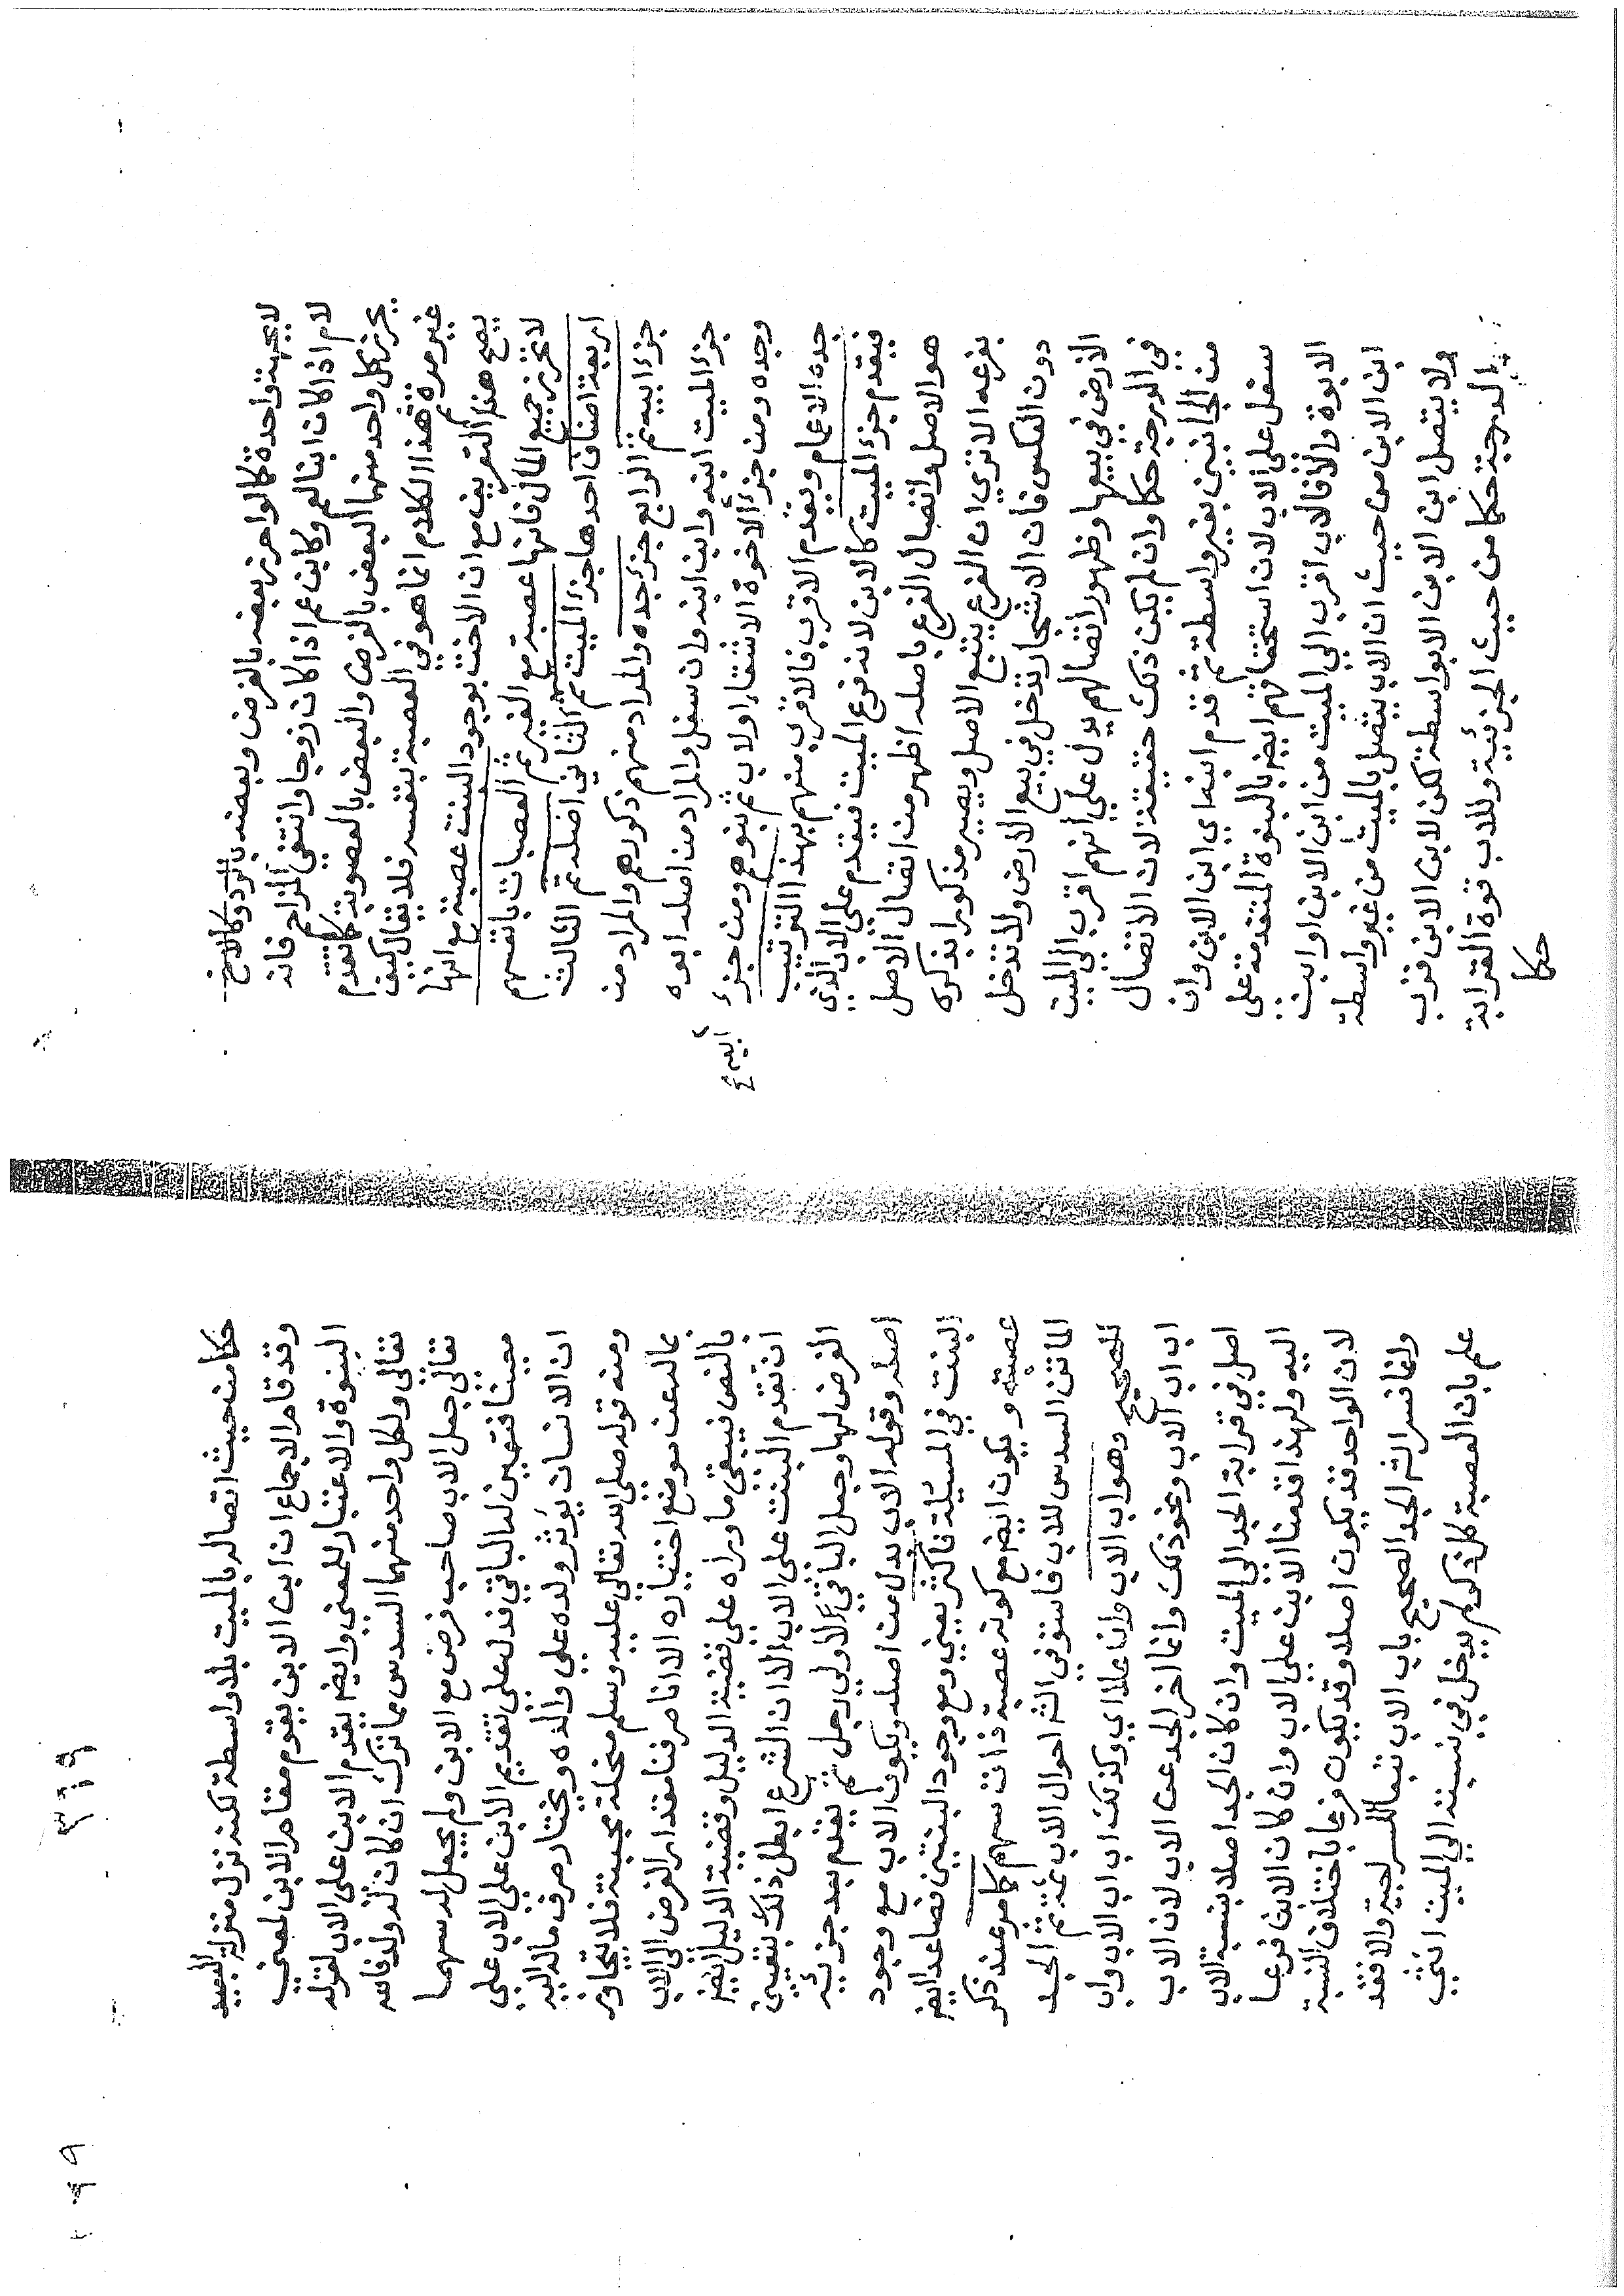 لا بجهة واحدة كما لو احرز بعضه بالفرض وبعضه بالرد وكالاخ
لام اذا كان ابنا لعم وكابن عم اذا كان زوجا وانتفى المزاحم فانه
يحرز كل واحد منهما البعض بالفرض والبعض بالعصوبة كما تقدم
غير مرة ثم هذا الكلام انما هو في العصبة بنفسه فلا يقال كيف
يصح هذا التعريف مع ان الاخت بوجود البنت عصبة مع انها
لا تحرز جميع المال فانها عصبة مع الغير ثم العصبات بانفسهم
اربعة اصناف احدها جزء الميت ثم الثاني اصله ثم الثالث
جزء ابيه ثم الرابع جزء جده والمراد منهم ذكورهم والمراد من
جزء الميت ابنه وابن ابنه وان سفل والمراد من اصله ابوه
وجده ومن جزء الاخوة الاشقاء او لاب ثم بنوهم ومن جزء
ابيه
جده الاعمام ويقدم الاقرب فالاقرب منهم بهذا الترتيب
فيقدم جزء الميت كالابن لانه فرع الميت فيقدم على الاب الذي
هو الاصل واتصال الفرع باصله اظهر من اتصال الاصل
بفرعه الا ترى ان الفرع يتبع الاصل ويصير مذكورا بذكره
دون العكس فان الاشجار تدخل في بيع الارض ولا تدخل
الارض في بيعها وظهور اتصالهم يدل على انهم اقرب الى الميت
في الدرجة حكما وان لم يكن ذلك حقيقة لان الاتصال
من الجانبين بغير واسطة ثم قدم ابنه اي ابن الابن وان
سفل على الاب لان استحقاقهم ايضا بالبنوة المتقدمة على
الابوة والا فالاب اقرب الى الميت من ابن الابن او ابن
ابن الابن من حيث ان الاب يتصل بالميت من غير واسطة
ولا يتصل ابن الابن الا بواسطة لكن لابن الابن قرب
الدرجة حكما من حيث الجزئية وللاب قوة القرابة
حكما
٣١٩
حكما من حيث اتصاله بالميت بلا واسطة لكنه نزل منزلة البعيد
وقد قام الاجماع ان ابن الابن يقوم مقام الابن لمعنى
البنوة والاعتبار للمعنى وايضا يقدم الابن على الاب لقوله
تعالى ولكل واحد منهما السدس مما ترك ان كان له ولد فالله
تعالى جعل الاب صاحب فرض مع الابن ولم يجعل له سهما
معينا فتعين له الباقي فدل على تقديم الابن على الاب على
ان الانسان يؤثر ولده على والده ويختار صرف ماله اليه
ومنه قوله صلى الله تعالى عليه وسلم مبخلة مجبنة فلا يتجاوز
بمالهم عن موضع اختياره الا انا صرفنا مقدار الفرض الى الاب
بالنص فيبقى ما وراه على قضية الدليل وقضية الدليل ايضا
ان تقدم البنت على الاب الا ان الشرع ابطل ذلك بتعيين
الفرض لها وجعل الباقي لاولى رجل ثم يقدم بعد جزئه
اصله وقوله الاب بدل من اصله ويكون الاب مع وجود
البنت في المسئلة فاكثر يعني ومع وجود البنتين فصاعدا ايضا
عصبة ويكون ايضا مع كونه عصبة ذات سهم كما مر عند ذكر
الماتن السدس للاب فاستوفى الشه احوال الاب ثمة ثم الجد
الصحيح وهو اب الاب وان علا اي وكذلك اب اب الاب واب
اب اب الاب ونحو ذلك وانما اخر الجد عن الاب لان الاب
اصل في قرابة الجد الى الميت وان كان الجد اصلا بنسبة الاب
اليه ولهذا قدمنا الابن على الاب وان كان الابن فرعا
لان الواحد قد يكون اصلا وقد يكون فرعا باختلاف النسبة
وانما فسر الشه الجد الصحيح باب الاب تبعا للسراجية والا فقد
علم بان العصبة كل ذكر لم يدخل في نسبته الى الميت انثى